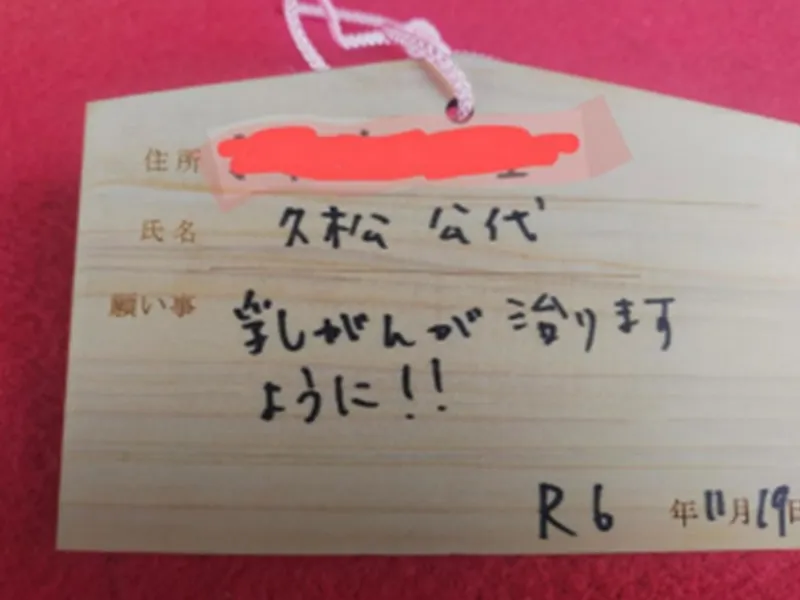 住所
氏名 久松 公代
願い事 乳がんが治ります
ように!!
R6 年11月19日